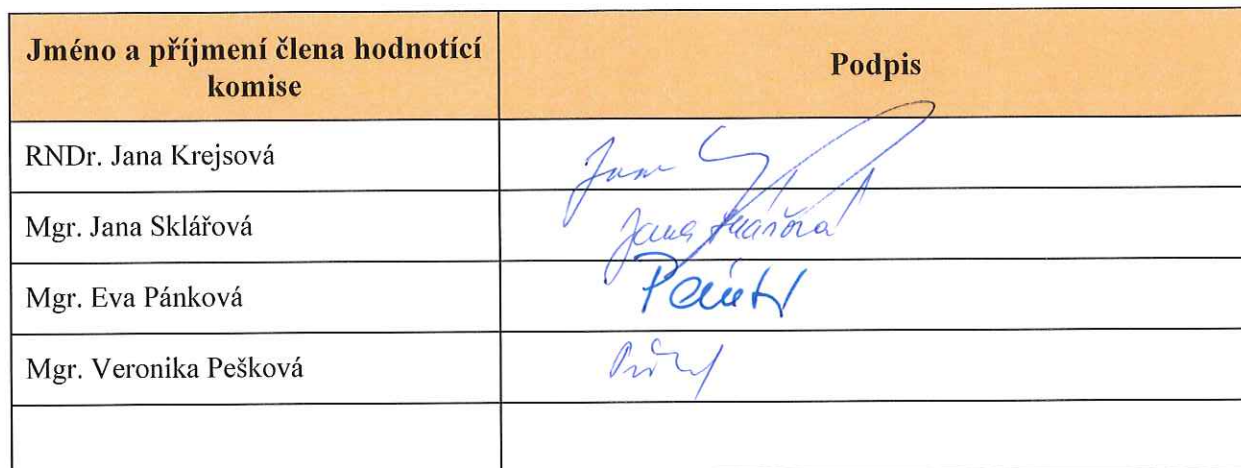 Jméno a příjmení člena hodnotící
komise
Podpis
RNDr. Jana Krejsová
Mgr. Jana Sklářová
Jana
Mgr. Eva Pánková
Mgr. Veronika Pešková